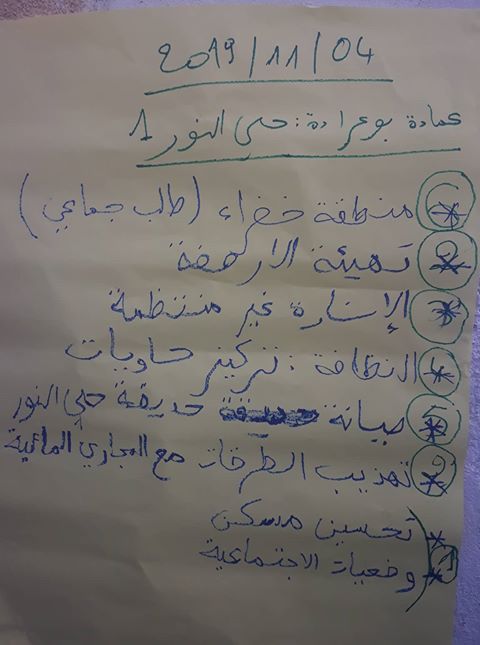 2019/11/04
عمادة بوعرادة: حي النور 1
* منطقة خضراء (طلب جماعي)
2 * تهيئة الارصفة
3 * الإنارة غير منتظمة
4 * النظافة: تركيز حاويات
5 * صيانة حديقة حي النور
* تهذيب الطرقات مع المجاري المائية
* تحسين مسكن
* وضعيات الاجتماعية